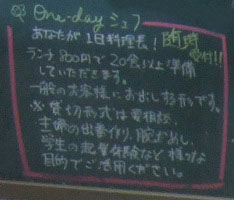 One-day シェフ
あなたが1日料理長! 随時受付!!
ランチ800円で20食以上準備
していただきます。
一般のお客様にお出しする形です。
※貸切形式は要相談
主婦の出番作り、腕だめし、
学生の起業体験など様々な
目的でご活用ください。